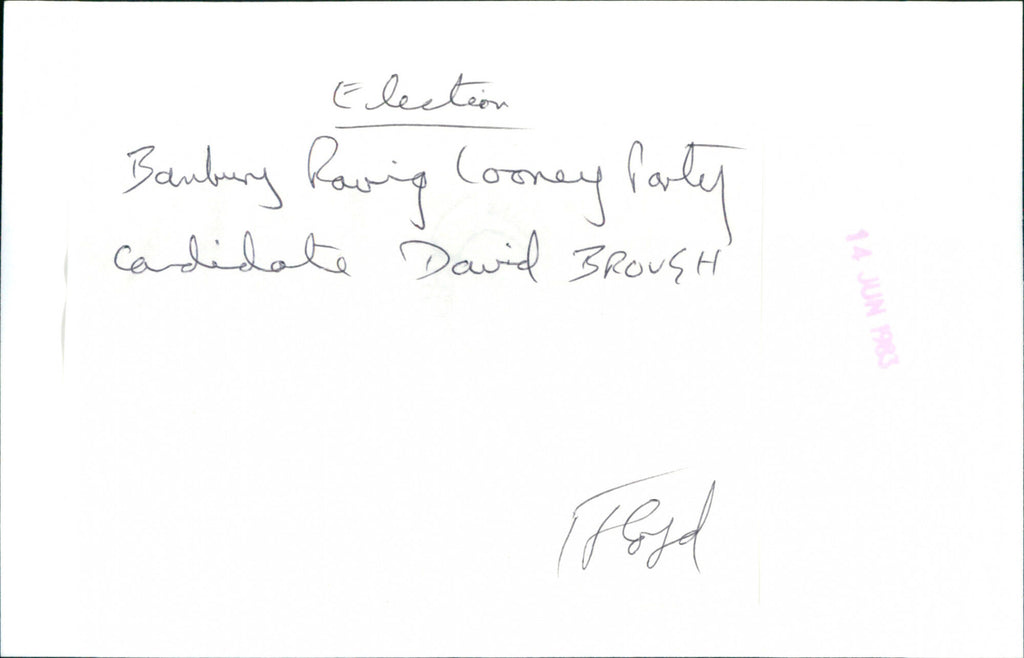 Election
Banbury Raving Looney Party
candidate David BROUGH
14 JUN 1983